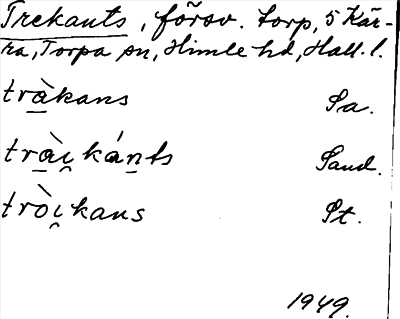 Trekants, försv. torp, 5 Kär-
ra, Torpa sn, Himle hd, Hall. l.
trà̱kans Sa.
trà̱i̯ká̱nts Sand.
tròi̯kans St.
1949.